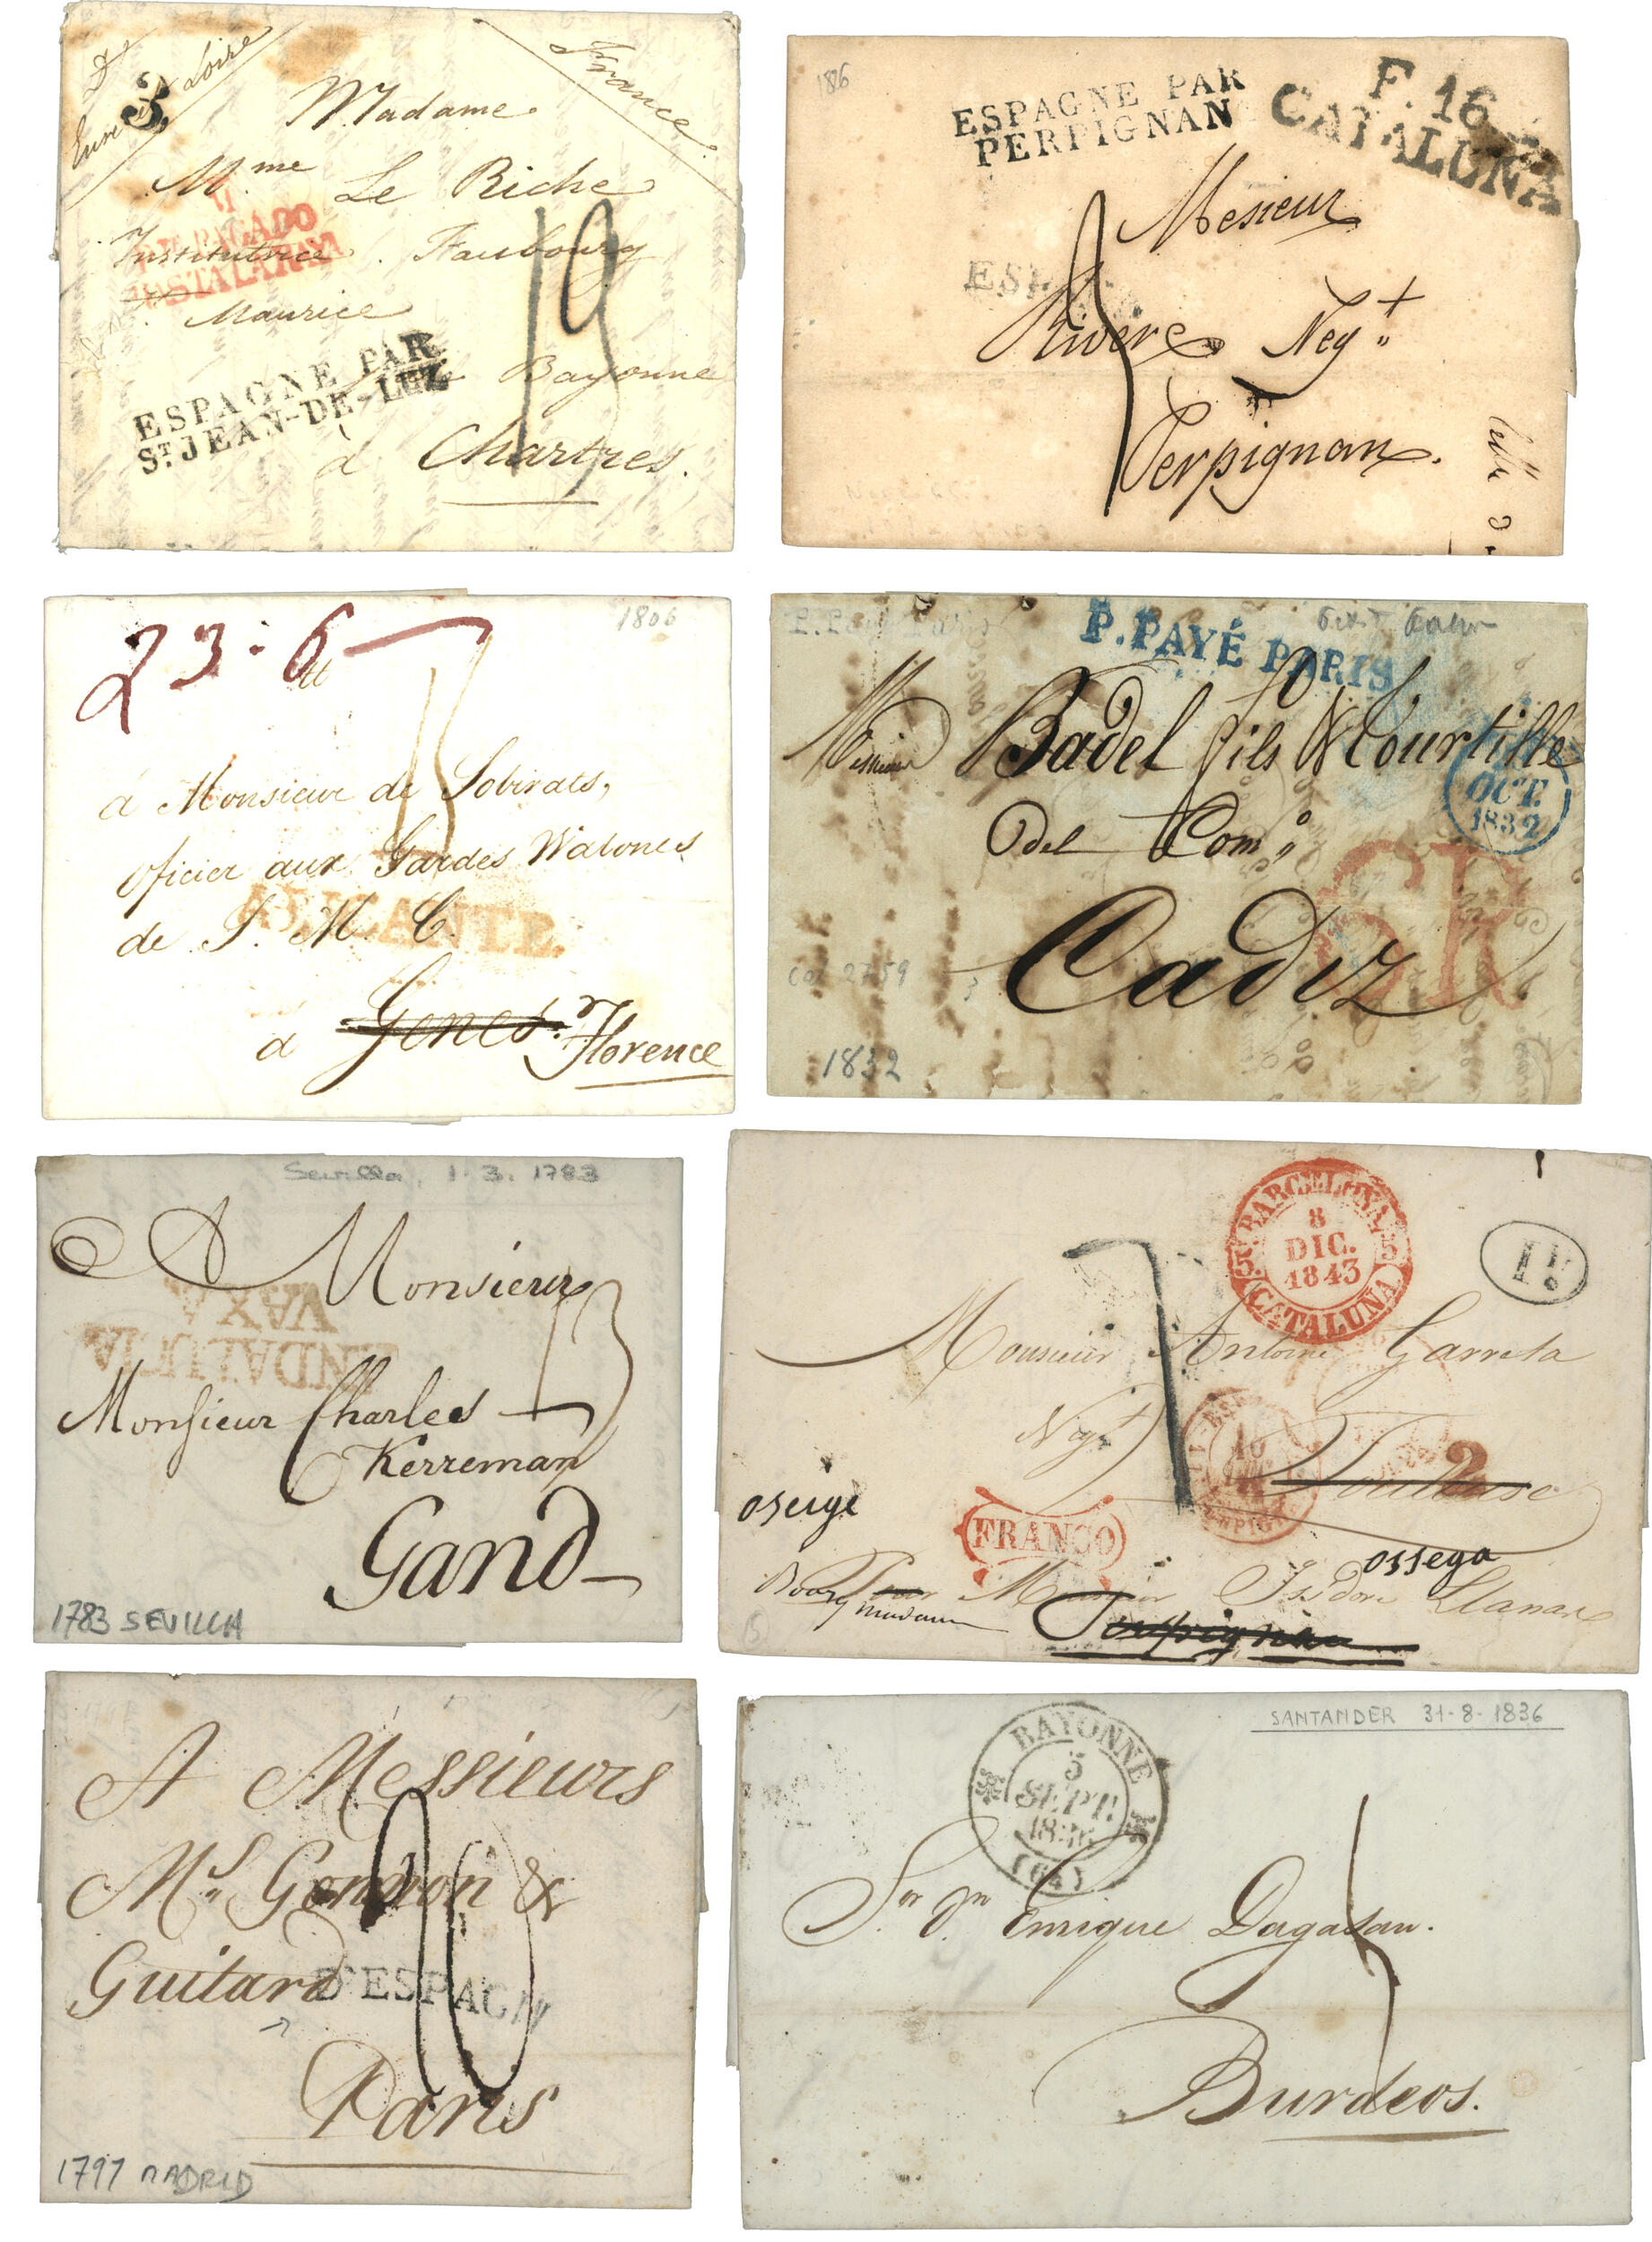 Dt
Eure et Loire
France
Madame
Mme Le Riche
Institutrice. Faubourg
Maurice
19
ESPAGNE PAR
ST. JEAN-DE-LUZ
Bayonne
à Chartres.
ESPAGNE PAR
PERPIGNAN
F. 16
CATALUNA
Mesieur
Rivere Negt
Perpignan.
1806
23 - 6
à Monsieur de Sobirats,
Oficier aux Gardes Walones
de S. M. C.
ALICANTE.
à Genes Florence
P. PAYÉ PARIS
Badel fils & Tourtille
OCT.
1832
Del Como
6R
Cadiz
Col 2759
1832
Sevilla, 1. 3. 1783
A Monsieur
13
ANDALUCIA
Monsieur Charles
Kerreman
Gand
1783 SEVILLA
BARCELONA
8
DIC.
1843
5 5
CATALUÑA
Monsieur Antoine Garreta
Negt
Toulouse
2
oseige
FRANCO
ossega
Isidore Llanas
Bourg madame
Perpignan
A Messieurs
Mrs Gondron &
Guitard
D'ESPAGN
20
Paris
1797 MADRID
SANTANDER 31-8-1836
BAYONNE
5
SEPT.
1836
(64)
Sor Dn Enrique Dagassan.
Burdeos.